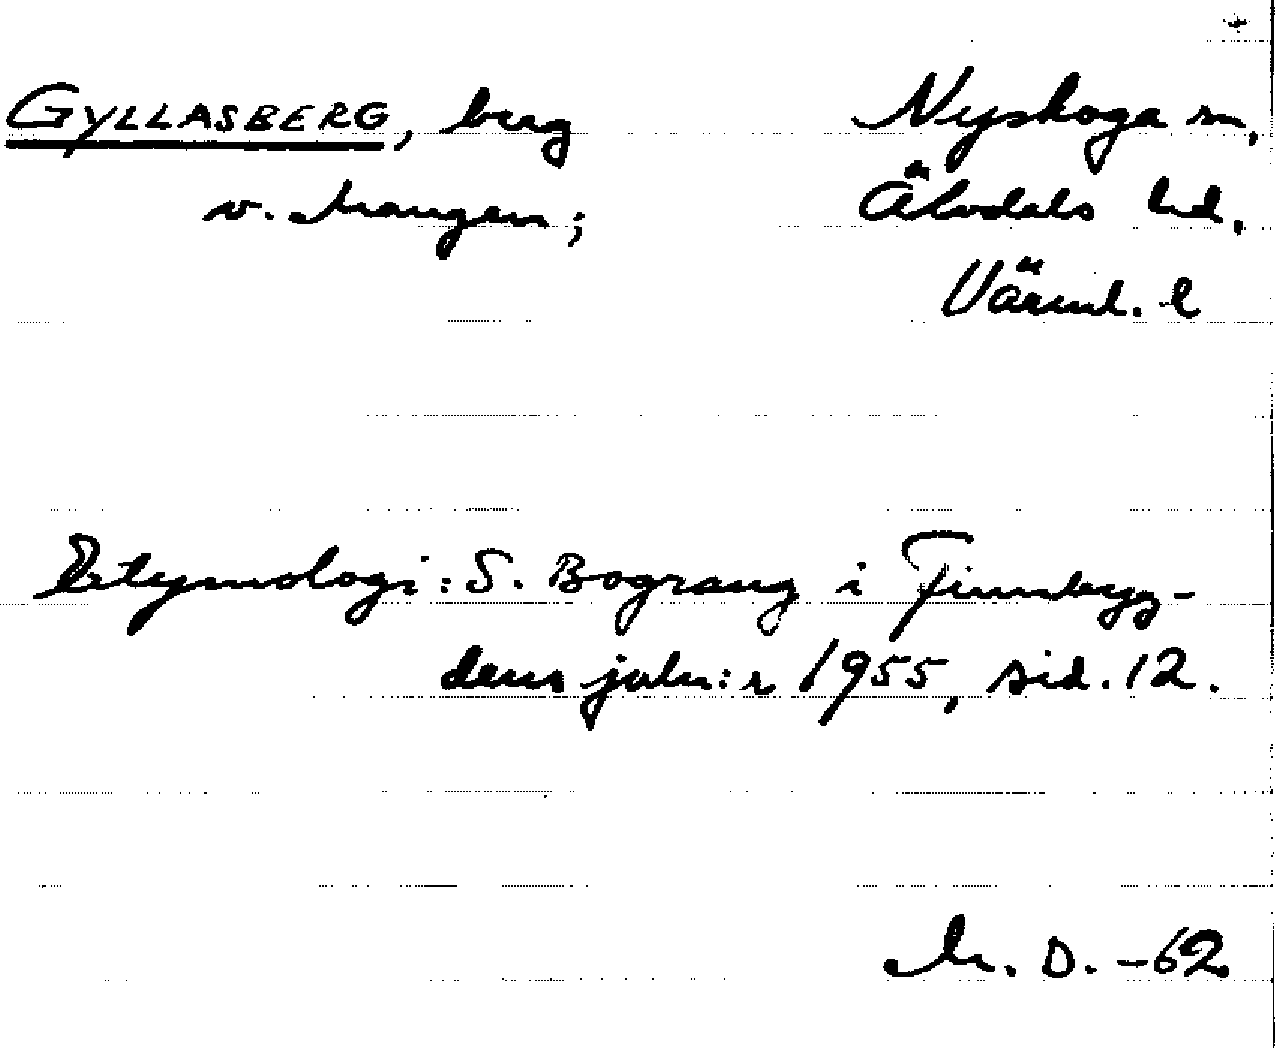 GYLLASBERG, berg
Nyskoga sn,
v. Mangen;
Älvdals hd,
Värml. l
Etymologi: S. Bograng i Finnbygg-
dens jaln:r 1955, sid. 12.
M. D. -62